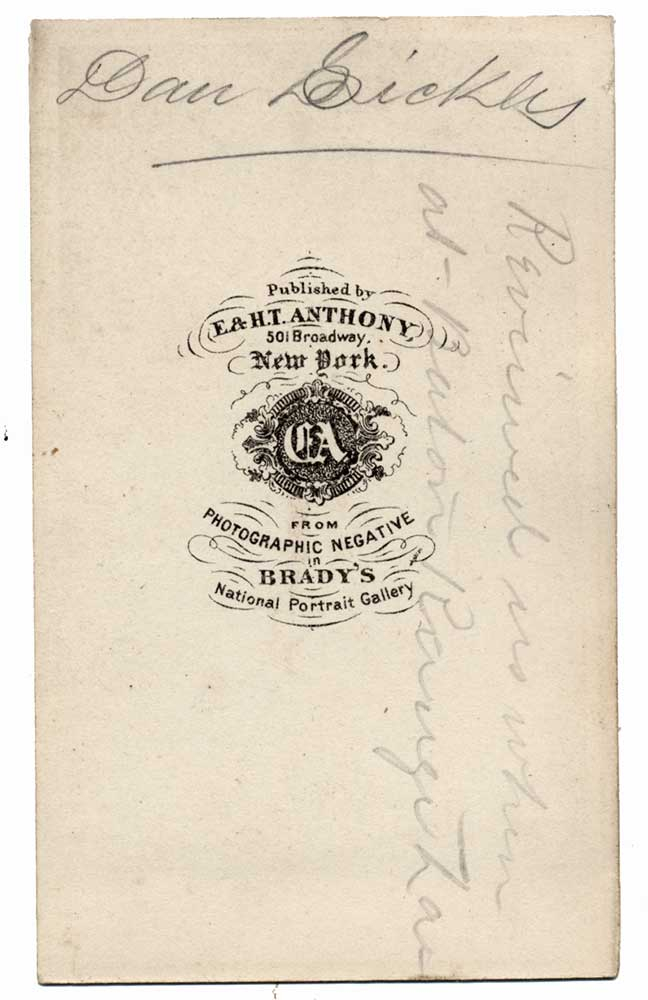 Dan Sickles
Published by
E. & H.T. ANTHONY,
501 Broadway,
New York.
EA
FROM
PHOTOGRAPHIC NEGATIVE
in
BRADY'S
National Portrait Gallery
Reviewed us when
at Baton Rouge La